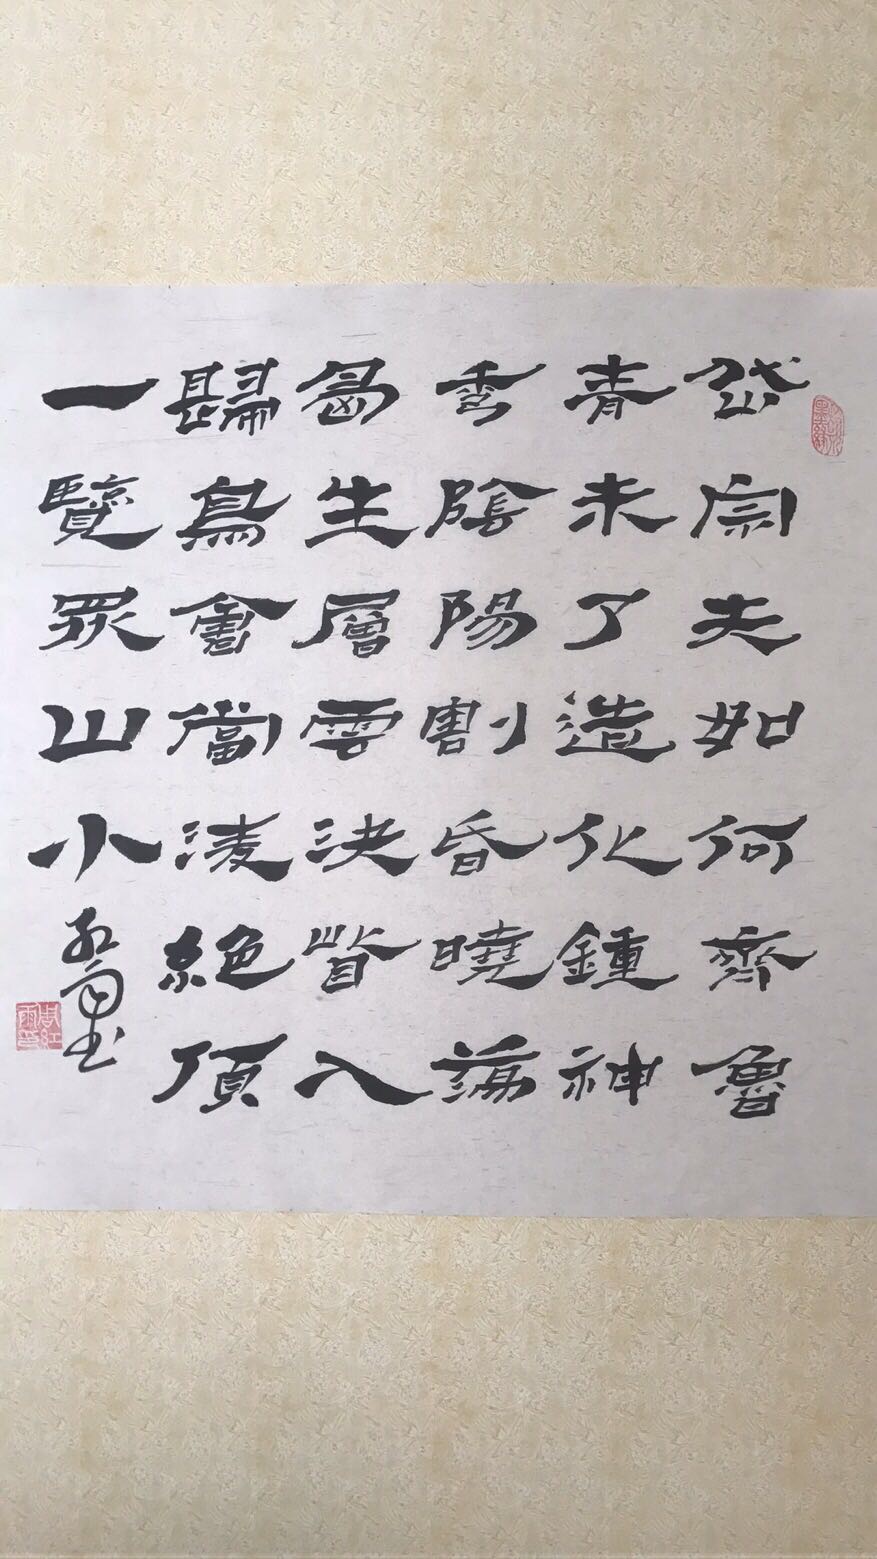 岱宗夫如何齊魯
青未了造化鍾神
秀陰陽割昏曉蕩
胷生層雲決眥入
歸鳥會當淩絕頂
一覽眾山小
紅雨書
周紅雨印